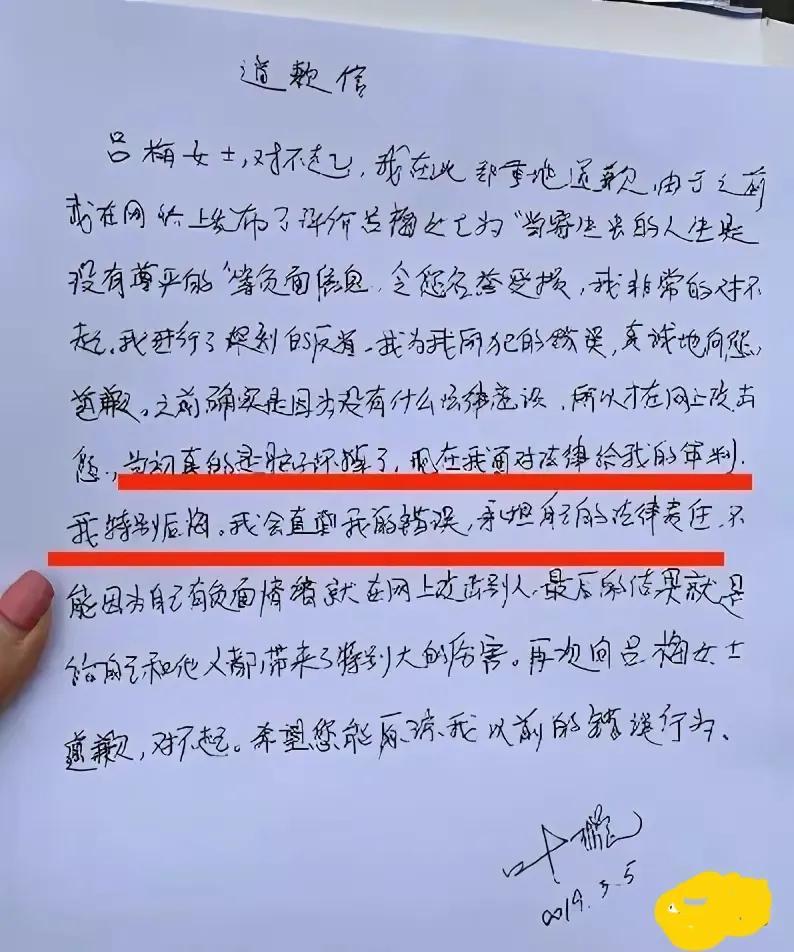 道歉信
吕梅女士，对不起，我在此郑重地道歉，由于之前
我在网络上发布了评价吕梅女士为“当寄生虫的人生是
没有尊严的”等负面信息，令您名誉受损，我非常的对不
起。我进行了深刻的反省。我为我所犯的错误，真诚地向您
道歉。之前确实是因为没有什么法律意识，所以才在网上攻击
您，当初真的是脑子坏掉了，现在我面对法律给我的审判，
我特别后悔。我会直面我的错误，承担自己的法律责任，不
能因为自己有负面情绪就在网上攻击别人，最后的结果就是
给自己和他人都带来了特别大的伤害。再次向吕梅女士
道歉，对不起。希望您能原谅我以前的错误行为。
2019.3.5